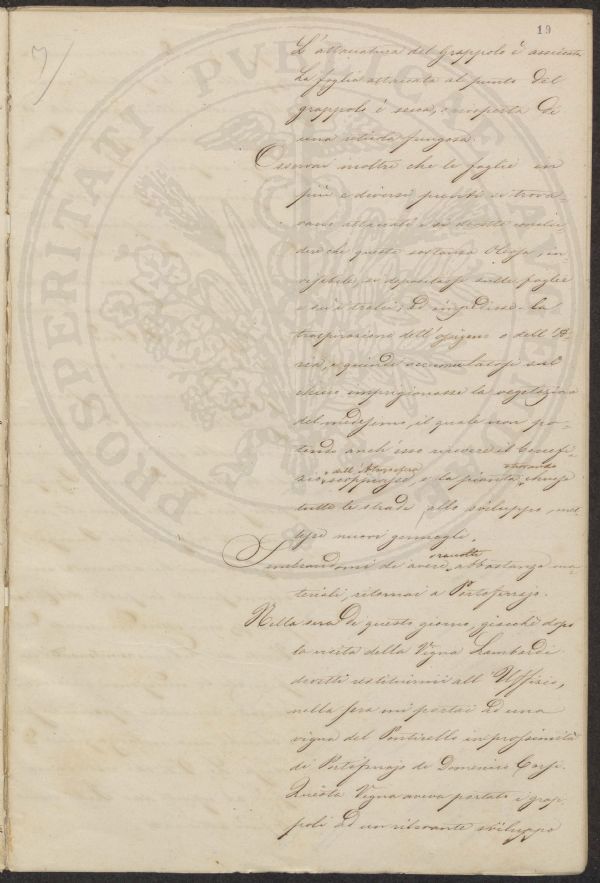 19
7/
L'attaccatura del Grappolo è assicata
La foglia attaccata al punto del
grappolo è secca, e coperta di
una retiola fungosa.
Osservai inoltre che le foglie in
più e diversi punti si trova-
vano attaccate e si dovette conclu-
dere che questa sostanza Oleosa, in-
visibile, si depositasse sulle foglie
e sui tralci, ed impedisse la
traspirazione dell'ossigeno o dell'A-
ria, e quindi accumulatosi sul
chicco imprigionasse la vegetazione
del medesimo, il quale non po-
tendo anch'esso ricevere il benefi-
zio dell'Atmosfera scoppiasse, e la pianta trovando chiuse
tutte le strade allo sviluppo, met-
tesse nuovi germogli.
Sembrandomi di avere raccolti abbastanza ma-
teriali, ritornai a Portoferrajo.
Nella sera di questo giorno, giacchè dopo
la visita della Vigna Lambardi
dovetti restituirmi all'Uffizio,
nella sera mi portai ad una
vigna del Ponticello in prossimità
di Portoferrajo di Domenico Corsi.
Questa Vigna aveva portato i grap-
poli ad un rilevante sviluppo
PROSPERITATI PVBLICAE